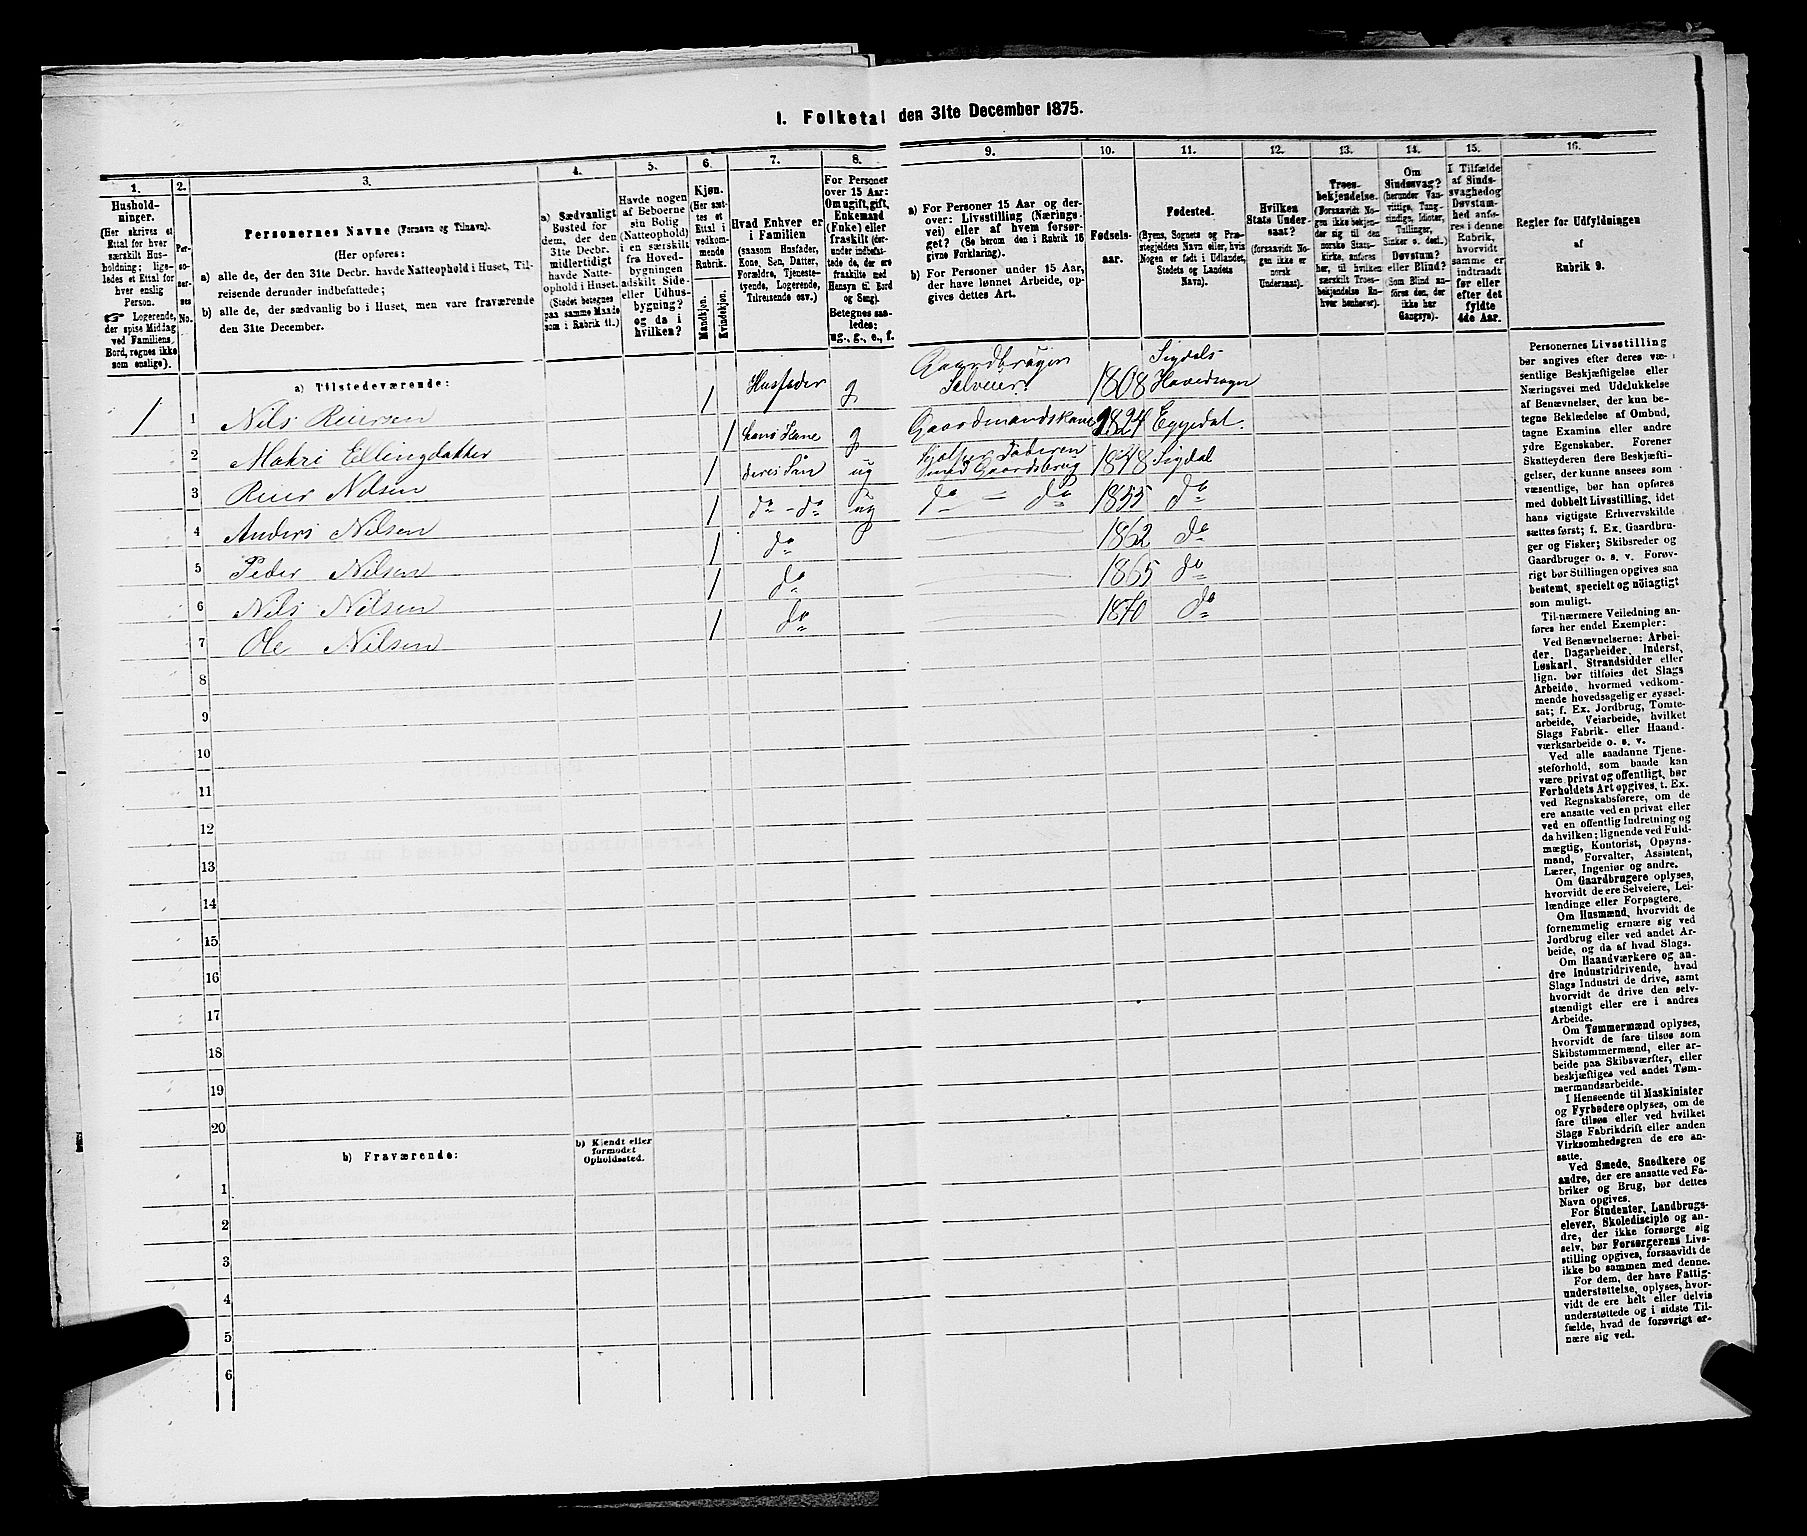 I. Folketal den 31te December 1875.
1. 2. 3. 4. 5. 6. 7. 8. 9. 10. 11. 12. 13. 14. 15. 16.
Hushold-
ninger.
(Her skrives et
Ettal for hver
særskilt Hus-
holdning; lige-
ledes et Ettal for
hver enslig
Person.
☞ Logerende,
der spise Middag
ved Familiens
Bord, regnes ikke
som enslige).
Per-
so-
ner-
nes
No.
Personernes Navne (Fornavn og Tilnavn).
(Her opføres:
a) alle de, der den 31te Decbr. havde Natteophold i Huset, Til-
reisende derunder indbefattede;
b) alle de, der sædvanlig bo i Huset, men vare fraværende
den 31te December.
a) Sædvanligt
Bosted for
dem, der den
31te Decbr.
midlertidigt
havde Natte-
ophold i Huset.
(Stedet betegnes
paa samme Maade
som i Rubrik 11.)
Havde nogen
af Beboerne
sin Bolig
(Natteophold)
i en særskilt
fra Hoved-
bygningen
adskilt Side-
eller Udhus-
bygning?
og da i
hvilken?
Kjøn.
(Her sæt-
tes et
Ettal i
vedkom-
mende
Rubrik.
Mandkjøn.
Kvindekjøn.
Hvad Enhver er
i Familien
(saasom Husfader,
Kone, Søn, Datter,
Forældre, Tjeneste-
tyende, Logerende,
Tilreisende osv.)
For Personer
over 15 Aar:
Om ugift, gift,
Enkemand
(Enke) eller
fraskilt (der-
under indbefat-
tede de, der ere
fraskilte med
Hensyn til Bord
og Seng).
Betegnes saa-
ledes:
ug., g., e., f.
a) For Personer 15 Aar og der-
over: Livsstilling (Nærings-
vei) eller af hvem forsør-
get? (Se herom den i Rubrik 16
givne Forklaring).
b) For Personer under 15 Aar,
der have lønnet Arbeide, op-
gives dettes Art.
Fødsels-
aar.
Fødested.
(Byens, Sognets og Præ-
stegjeldets Navn eller, hvis
Nogen er født i Udlandet,
Stedets og Landets
Navn).
Hvilken
Stats Under-
saat?
(forsaavidt No-
gen ikke er
norsk
Undersaat).
Troes-
bekjendelse.
(Forsaavidt No-
gen ikke bekjen-
der sig til den
norske Stats-
kirke, anføres
her, til hvilken
særskilt Troes-
bekjendelse En-
hver henhører).
Om
Sindssvag?
(herunder Van-
vittige, Tung-
sindige, Idioter,
Tullinger,
Sinker o. desl.)
Døvstum?
eller Blind?
(Som Blind an-
føres den, der
ikke har
Gangsyn).
I Tilfælde
af Sinds-
svaghed og
Døvstum-
hed anfø-
res i denne
Rubrik,
hvorvidt
samme er
indtraadt
før eller
efter det
fyldte
4de Aar.
Regler for Udfyldningen
af
Rubrik 9.
a) Tilstedeværende:
1 1 Nils Reiersen 1 Husfader g Gaardbruger Selveier 1808 Sigdals Hovedsogn
2 Makri Ellingdatter 1 hans Kone g Gaardmandskone 1824 Eggedal.
3 Reier Nilsen 1 deres Søn ug hjælper Faderen med Gaardsbrug 1848 Sigdal
4 Anders Nilsen 1 do - do ug do = do 1855 do
5 Peder Nilsen 1 do 1862 do
6 Nils Nilsen 1 do 1865 do
7 Ole Nilsen 1 do 1870 do
8
9
10
11
12
13
14
15
16
17
18
19
20
b) Fraværende:
b) Kjendt eller
formodet
Opholdssted.
1
2
3
4
5
6
Personernes Livsstilling
bør angives efter deres væ-
sentlige Beskjæftigelse eller
Næringsvei med Udelukkelse
af Benævnelser, der kun be-
tegne Beklædelse af Ombud,
tagne Examina eller andre
ydre Egenskaber. Forener
Skatteyderen flere Beskjæfti-
gelser, der kunne ansees som
væsentlige, bør han opføres
med dobbelt Livsstilling, idet
hans vigtigste Erhvervskilde
sættes først; f. Ex. Gaardbru-
ger og Fisker; Skibsreder og
Gaardbruger o. s. v. Forøv-
rigt bør Stillingen opgives saa
bestemt, specielt og nøiagtigt
som muligt.
Til nærmere Veiledning an-
føres her endel Exempler:
Ved Benævnelserne: Arbei-
der, Dagarbeider, Inderst,
Løskarl, Strandsidder eller
lign. bør tilføies det Slags
Arbeide, hvormed vedkom-
mende hovedsagelig er syssel-
sat; f. Ex. Jordbrug, Tomte-
arbeide, Veiarbeide, hvilket
Slags Fabrik- eller Haand-
værksarbeide o. s. v.
Ved alle saadanne Tjene-
steforhold, som baade kan
være privat og offentligt, bør
Forholdets Art opgives, t. Ex.
ved Regnskabsførere, om de
ere ansatte ved en privat eller
ved en offentlig Indretning og
da hvilken; lignende ved Fuld-
mægtig, Kontorist, Opsyns-
mand, Forvalter, Assistent,
Lærer, Ingeniør og andre.
Om Gaardbrugere oplyses,
hvorvidt de ere Selveiere, Lei-
lændinge eller Forpagtere.
Om Husmænd, hvorvidt de
fornemmelig ernære sig ved
Jordbrug eller ved andet Ar-
beide, og da af hvad Slags.
Om Haandværkere og an-
dre Industridrivende, hvad
Slags Industri de drive, samt
hvorvidt de drive den selv-
stændigt eller ere i andres
Arbeide.
Om Tømmermænd oplyses,
hvorvidt de fare tilsøs som
Skibstømmermænd, eller ar-
beide paa Skibsværfter, eller
beskjæftiges ved andet Tøm-
mermandsarbeide.
I Henseende til Maskinister
og Fyrbødere oplyses, om de
fare tilsøs eller ved hvilket
Slags Fabrikdrift eller anden
Virksomhedsgren de ere an-
satte.
Ved Smede, Snedkere og
andre, der ere ansatte ved Fa-
briker og Brug, bør dettes
Navn opgives.
For Studenter, Landbrugs-
elever, Skoledisciple og an-
dre, der ikke forsørge sig
selv, bør Forsørgerens Livs-
stilling opgives, forsaavidt de
ikke bo sammen med denne.
For dem, der have Fattig-
understøttelse, oplyses, hvor-
vidt de ere helt eller delvis
understøttede og i sidste Til-
fælde, hvad de forøvrigt er-
nære sig ved.